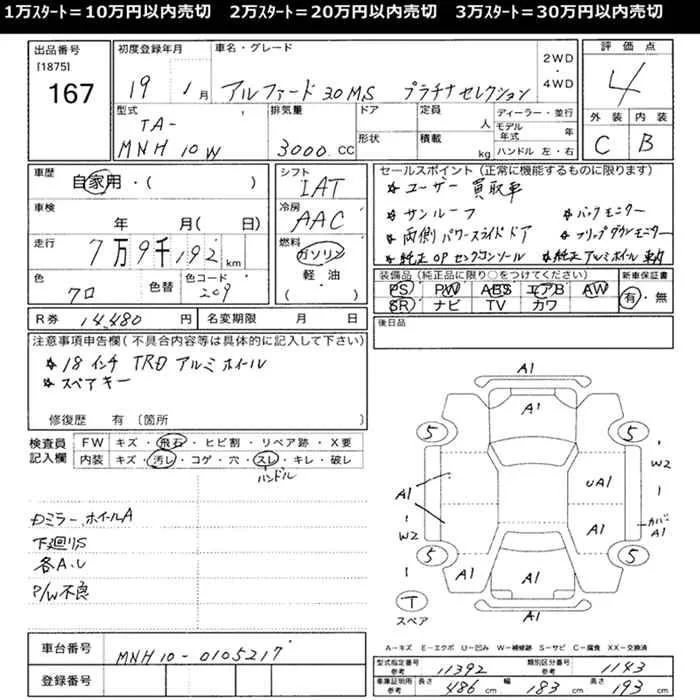 1万スタート＝10万円以内売切　2万スタート＝20万円以内売切　3万スタート＝30万円以内売切
出品番号 初度登録年月 車名・グレード 評価点
[1875]
167
19 1月 アルファード 3.0MS プラチナセレクション
2WD
・
4WD
4
型式 排気量 ドア 定員 ディーラー・並行
TA-
MNH 10W
3000 CC
人
モデル年式 年
形状 積載 kg ハンドル 左・右
外装 内装
C B
車歴 自家用・( )
シフト IAT
セールスポイント(正常に機能するものに限ります)
★ユーザー買取車
★サンルーフ ★バックモニター
★両側パワースライドドア ★フリップダウンモニター
★純正OPセンターコンソール ★純正アルミホイール車内
車検 年 月( 日)
冷房 AAC
走行 7万9千192km
燃料 ガソリン
軽・油
( )
色 クロ 色替 色コード 209
装備品(純正品に限り○をつけてください) 新車保証書
PS PW ABS エアB AW
SR ナビ TV カワ
有・無
R券 14,480円 名変期限 月 日
後日品
注意事項申告欄(不具合内容等は具体的に記入して下さい)
★18インチ TRDアルミホイール
★スペアキー
修復歴 有 〔箇所 〕
検査員記入欄
FW キズ・飛石・ヒビ割・リペア跡・X要
内装 キズ・汚レ・コゲ・穴・スレ・キレ・破レ
ハンドル
Dミラー ホイールA
下廻りS
各A.U
P/W不良
A1
A1
5 5
W2
A1 UA1
A1 カバーA1
W2
5 5
A1 A1 A1
T
スペア
A1
A－キズ E－エクボ U－凹み W－補修跡 S－サビ C－腐食 XX－交換済
車台番号 MNH10-0105217
登録番号
型式指定番号 参考 11392 類別区分番号 参考 1143
車庫証明用 参考 長さ 486 cm 幅 183 cm 高さ 193 cm